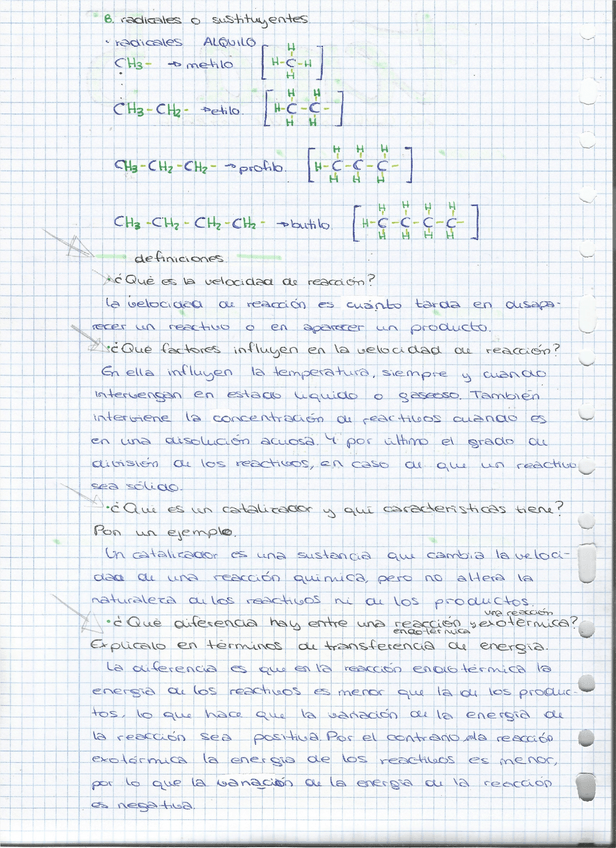 B. radicales o sustituyentes
· radicales ALQUILO
CH3- → metilo [H-C-H H H]
CH3-CH2- → etilo. [H-C-C- H H H H]
CH3-CH2-CH2- → profilo. [H-C-C-C- H H H H H H]
CH3-CH2-CH2-CH2- → butilo. [H-C-C-C-C- H H H H H H H H]
definiciones.
·¿Qué es la velocidad de reacción?
La velocidad de reacción es cuánto tarda en desapa-
recer un reactivo o en aparecer un producto.
·¿Qué factores influyen en la velocidad de reacción?
En ella influyen la temperatura, siempre y cuando
intervengan en estado líquido o gaseoso. También
interviene la concentración de reactivos cuando es
en una disolución acuosa. Y por último el grado de
división de los reactivos, en caso de que un reactivo
sea sólido.
·¿Que es un catalizador y qué características tiene?
Pon un ejemplo.
Un catalizador es una sustancia que cambia la veloci-
dad de una reacción química, pero no altera la
naturaleza de los reactivos ni de los productos.
·¿Qué diferencia hay entre una reacción endotérmica y una reacción exotérmica?
Explícalo en términos de transferencia de energía.
La diferencia es que en la reacción endotérmica la
energía de los reactivos es menor que la de los produc-
tos, lo que hace que la variación de la energía de
la reacción sea positiva. Por el contrario, la reacción
exotérmica la energía de los reactivos es menor,
por lo que la variación de la energía de la reacción
es negativa.